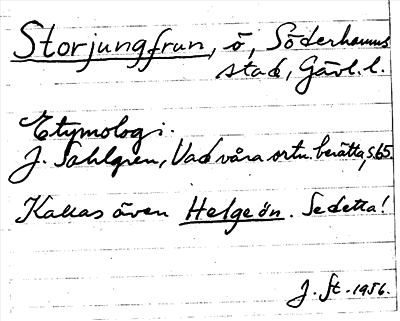 Storjungfrun, ö, Söderhamns
stad, Gävl. l.
Etymologi.
J. Sahlgren, Vad våra ortn. berätta, s. 65.
Kallas även Helgeön. Se detta!
J. St. 1956.